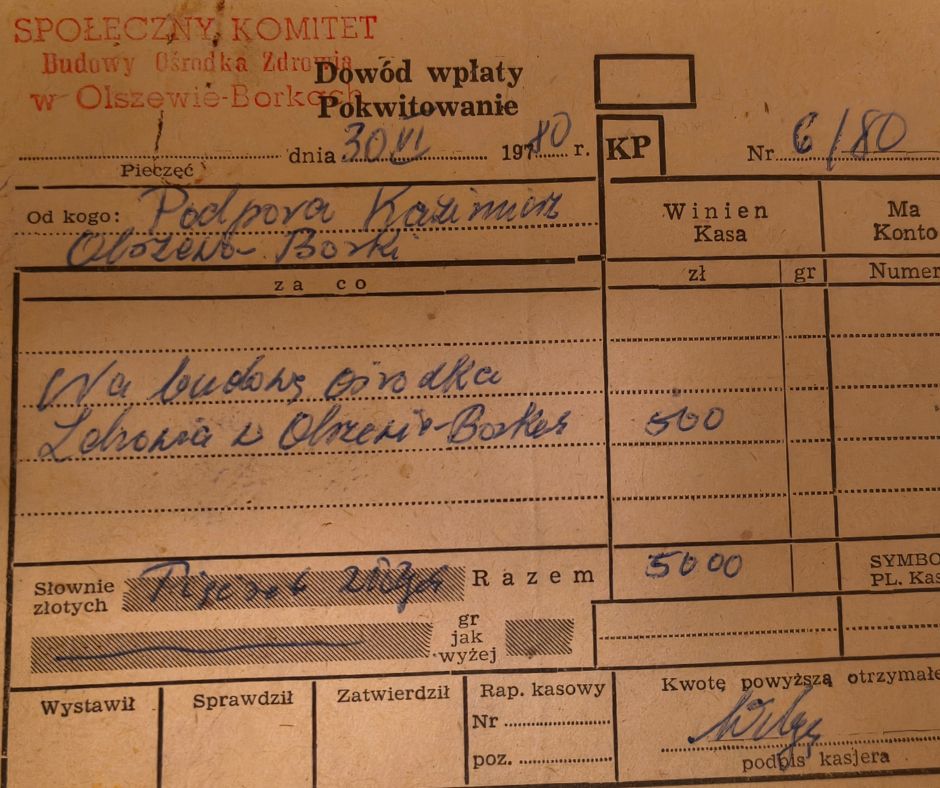 SPOŁECZNY KOMITET
Budowy Ośrodka Zdrowia
w Olszewie-Borkach
Dowód wpłaty
Pokwitowanie
dnia 30 VI 197 80 r.
KP
Nr 6/80
Pieczęć
Od kogo: Podpora Kazimierz
Olszewo-Borki
Winien
Kasa
Ma
Konto
za co
zł gr
Numer
Na budowę Ośrodka
Zdrowia w Olszewie-Borkach 500
Słownie
złotych
Pięćset złotych
Razem 5000
SYMBO
PL. Kas
gr
jak
wyżej
Wystawił
Sprawdził
Zatwierdził
Rap. kasowy
Nr
poz.
Kwotę powyższą otrzymałe
podpis kasjera